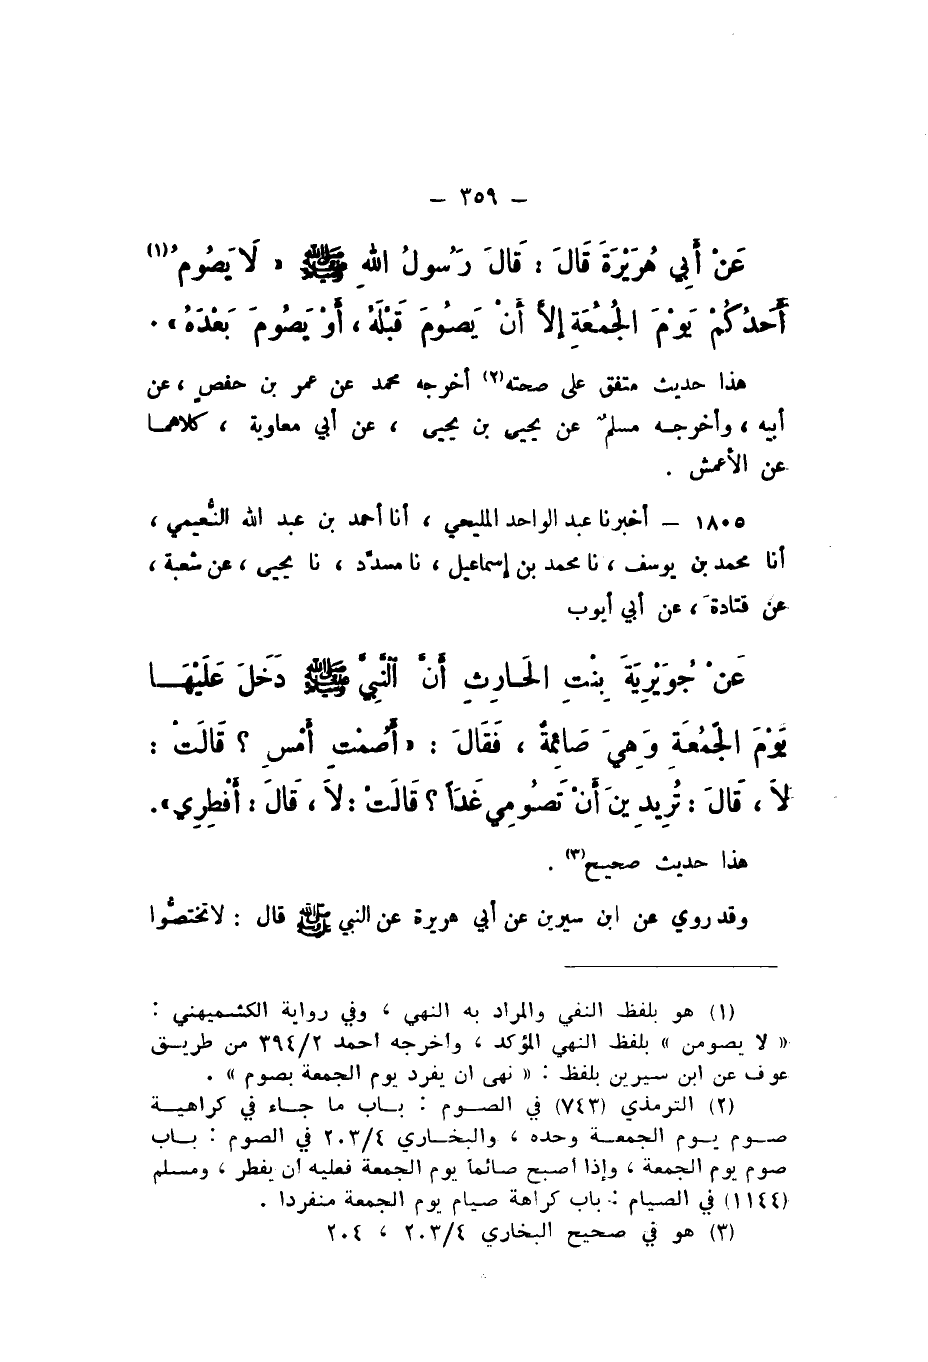 – ٣٥٩ –
عَنْ أَبِي هُرَيْرَةَ قَالَ : قَالَ رَسُولُ اللهِ ﷺ « لَا يَصُومُ(١)
أَحَدُكُمْ يَوْمَ الجُمُعَةِ إلاَّ أَنْ يَصُومَ قَبْلَهُ ، أَوْ يَصُومَ بَعْدَهُ » .
هذا حديث متفق على صحته(٢) أخرجه محمد عن عمر بن حفصٍ ، عن
أبيه ، وأخرجه مسلمٌ عن يحيى بن يحيى ، عن أبي معاوية ، كلاهما
عن الأعمش .
١٨٠٥ – أخبرنا عبد الواحد المليحي ، أنا أحمد بن عبد الله النُّعيمي ،
أنا محمد بن يوسف ، نا محمد بن إسماعيل ، نا مسدَّد ، نا يحيى ، عن شعبة ،
عن قتادةَ ، عن أبي أيوب
عَنْ جُوَيْرِيَةَ بِنْتِ الحَارِثِ أَنَّ النَّبِيَّ ﷺ دَخَلَ عَلَيْهَا
يَوْمَ الجُمُعَةِ وَهِيَ صَائِمَةٌ ، فَقَالَ : « أَصُمْتِ أَمْسِ ؟ قَالَتْ :
لاَ ، قَالَ : تُرِيدِينَ أَنْ تَصُومِي غَدَاً ؟ قَالَتْ : لاَ ، قَالَ : أَفْطِرِي » .
هذا حديث صحيح(٣) .
وقد روي عن ابن سيرين عن أبي هريرة عن النبي ﷺ قال : لا تختصُّوا
(١) هو بلفظ النفي والمراد به النهي ، وفي رواية الكشميهني :
« لا يصومن » بلفظ النهي المؤكد ، وأخرجه أحمد ٣٩٤/٢ من طريق
عوف عن ابن سيرين بلفظ : « نهى ان يفرد يوم الجمعة بصوم » .
(٢) الترمذي (٧٤٣) في الصوم : باب ما جاء في كراهية
صوم يوم الجمعة وحده ، والبخاري ٢٠٣/٤ في الصوم : باب
صوم يوم الجمعة ، وإذا أصبح صائماً يوم الجمعة فعليه أن يفطر ، ومسلم
(١١٤٤) في الصيام : باب كراهة صيام يوم الجمعة منفردا .
(٣) هو في صحيح البخاري ٢٠٣/٤ ، ٢٠٤